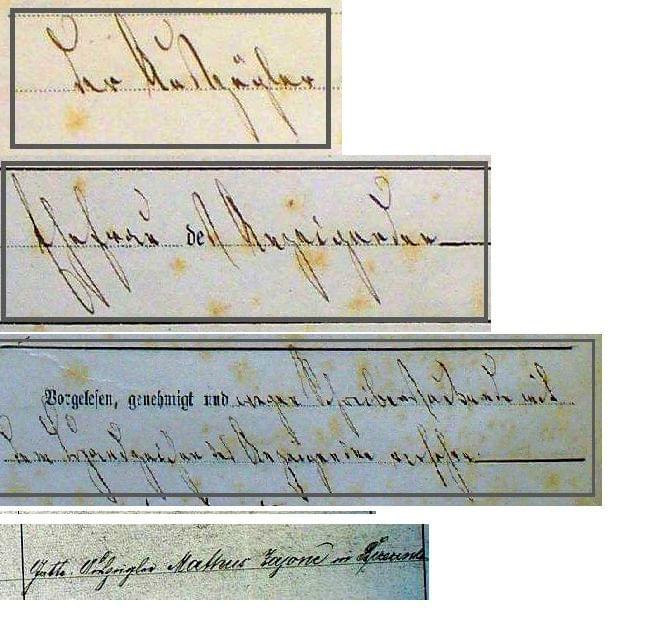 der Auszügler
Ehefrau des Anzeigenden
Vorgelesen, genehmigt und wegen Schreibensunkunde mit
dem Handzeichen des Anzeigenden versehen.
Gatte: Auszügler Matheus Zajonc in